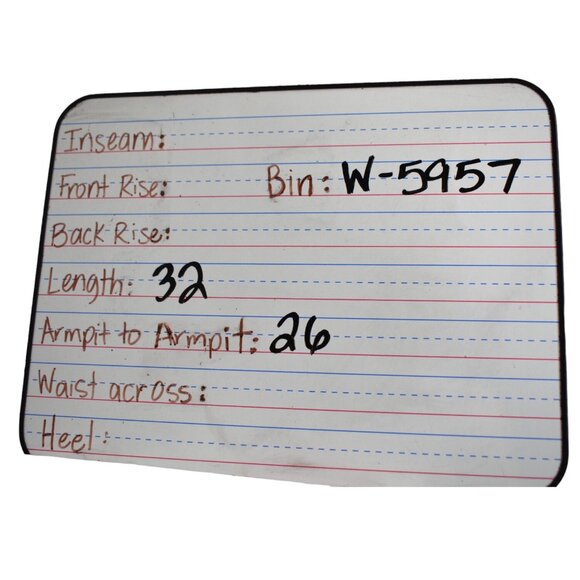 Inseam:
Front Rise: Bin: W-5957
Back Rise:
Length: 32
Armpit to Armpit: 26
Waist across:
Heel: